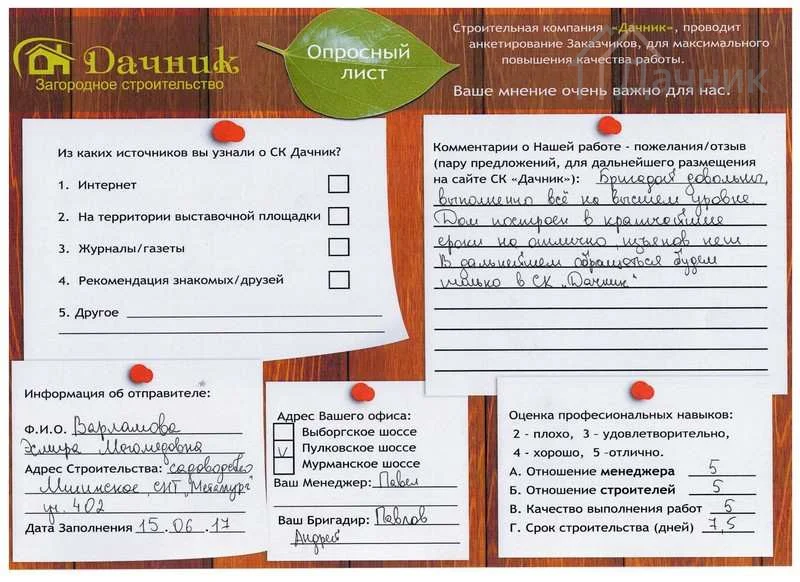 Дачник
Загородное строительство
Опросный
лист
Строительная компания «Дачник», проводит
анкетирование Заказчиков, для максимального
повышения качества работы.
Ваше мнение очень важно для нас.
Дачник
Из каких источников вы узнали о СК Дачник?
1. Интернет
2. На территории выставочной площадки
3. Журналы/газеты
4. Рекомендация знакомых/друзей
5. Другое
Комментарии о Нашей работе - пожелания/отзыв
(пару предложений, для дальнейшего размещения
на сайте СК «Дачник»): Бригадой довольны,
выполнено всё на высшем уровне.
Дом построен в кратчайшие
сроки на отлично, изъянов нет.
В дальнейшем обращаться будем
только в СК „Дачник"
Информация об отправителе:
Ф.И.О. Варламова
Эльмира Магомедовна
Адрес Строительства: садоводство
Мшинское, СНТ „Металлург"
уч. 402
Дата Заполнения 15.06.17
Адрес Вашего офиса:
Выборгское шоссе
V Пулковское шоссе
Мурманское шоссе
Ваш Менеджер: Павел
Ваш Бригадир: Павлов
Андрей
Оценка профессиональных навыков:
2 - плохо, 3 - удовлетворительно,
4 - хорошо, 5 -отлично.
А. Отношение менеджера 5
Б. Отношение строителей 5
В. Качество выполнения работ 5
Г. Срок строительства (дней) 7,5